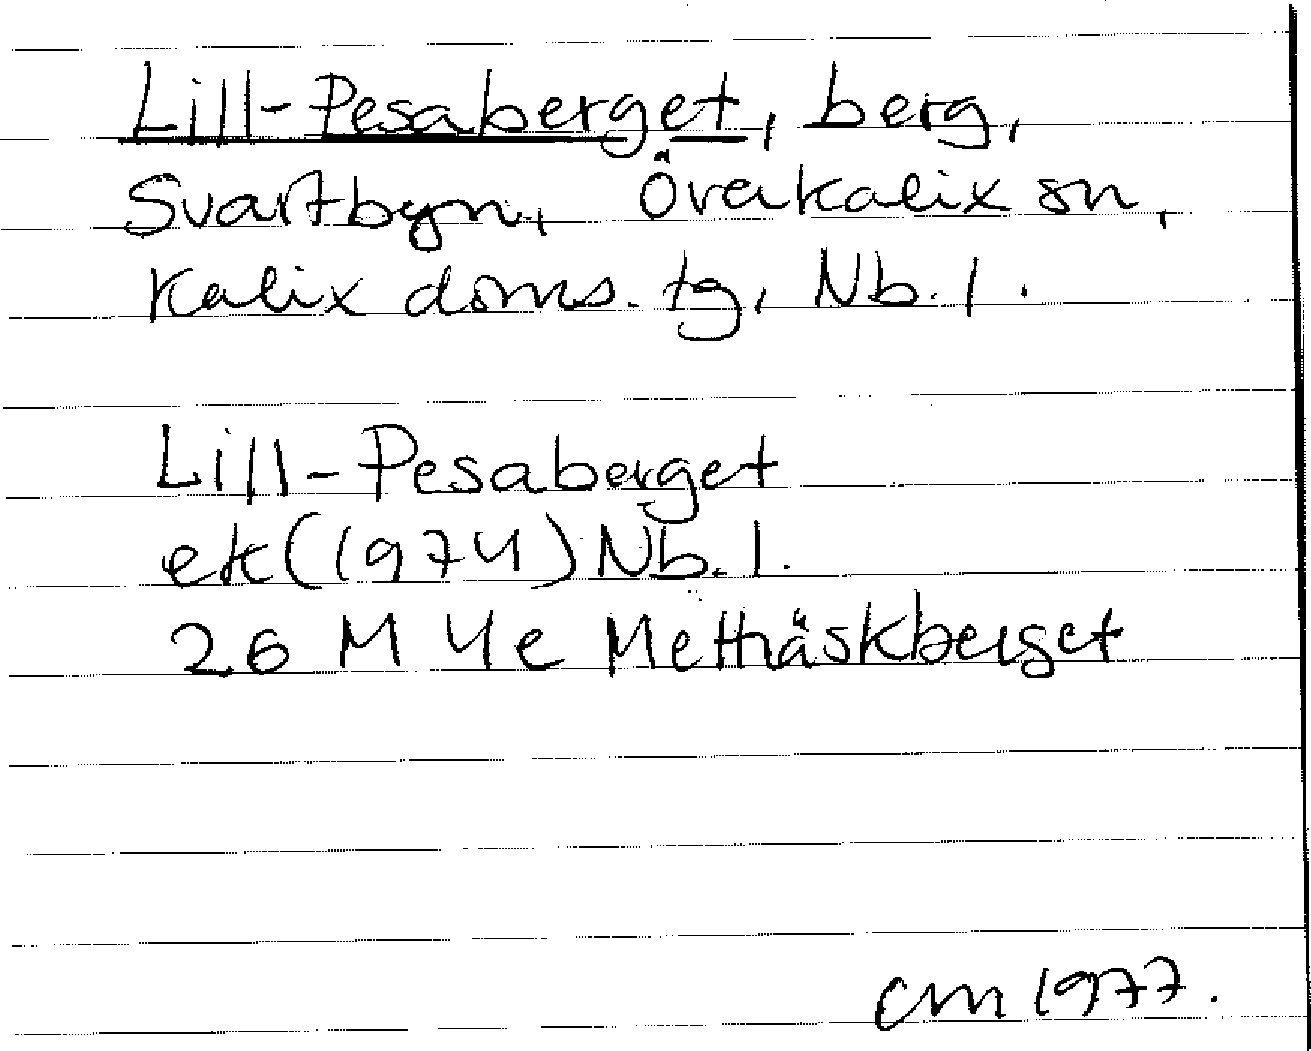 Lill-Pesaberget, berg,
Svartbyn, Överkalix sn,
Kalix doms. tg, Nb. l.
Lill-Pesaberget
ek (1974) Nb. l.
26 M 4e Metträskberget
cm 1977.